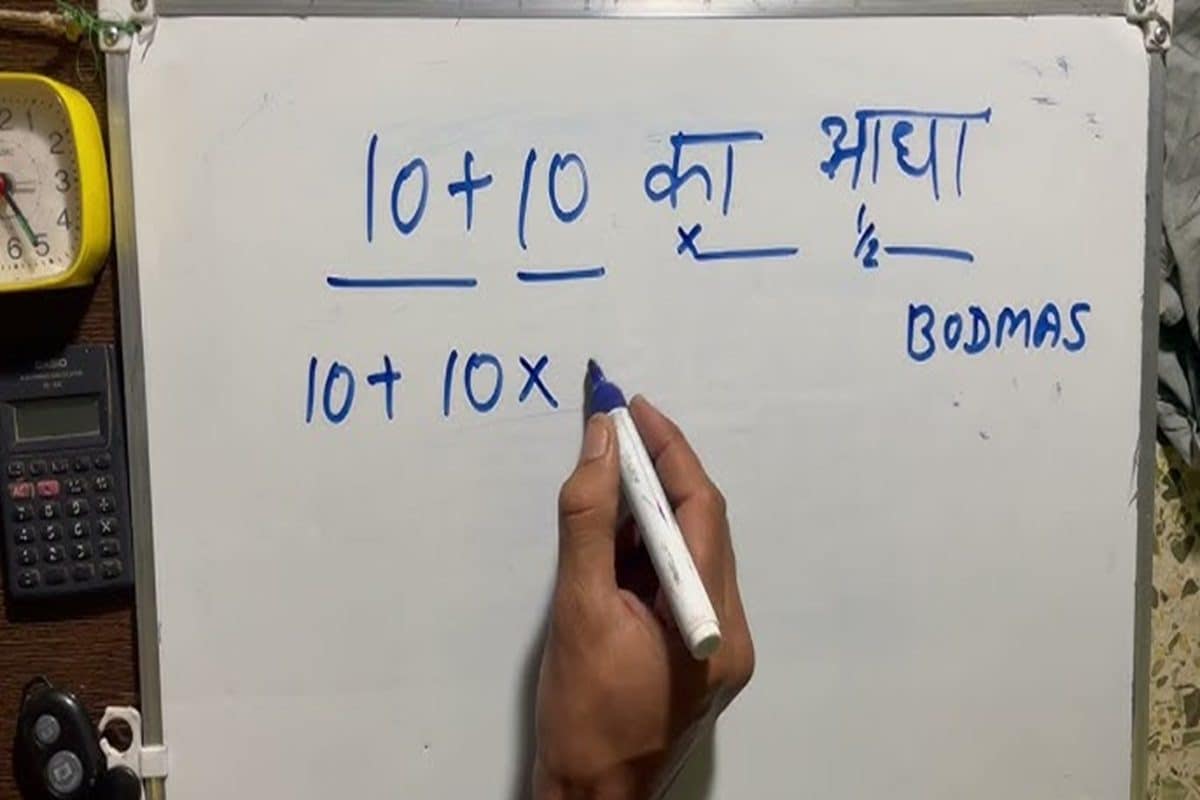 10 + 10 का आधा
× 1/2
BODMAS
10 + 10 ×
CASIO